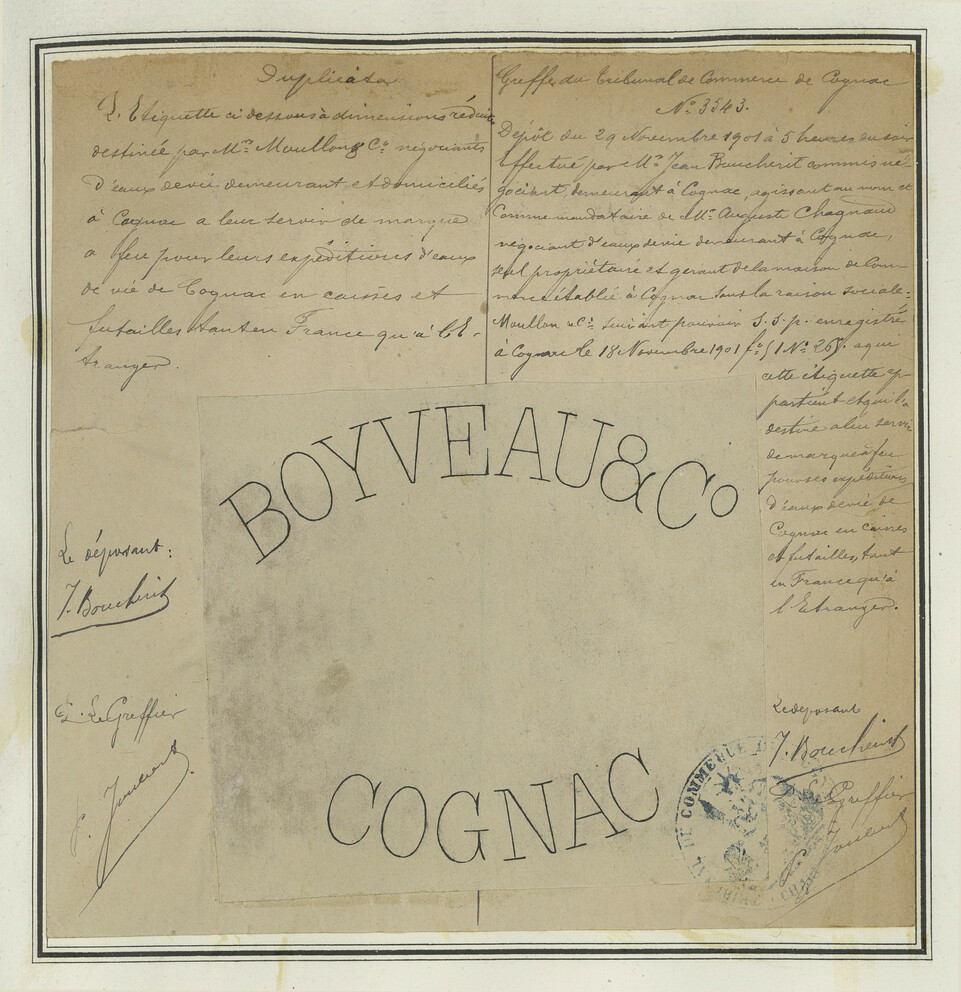 Duplicata
L'Etiquette ci dessous à dimensions réduites
destinée par Mrs Moullon & Co négociants
d'eaux de vie demeurant et domiciliés
à Cognac a leur servir de marque
a feu pour leurs expéditions d'eaux
de vie de Cognac en caisses et
futailles tant en France qu'à l'E-
tranger.
Greffe du Tribunal de Commerce de Cognac
No 3543.
Dépôt du 29 Novembre 1901 à 5 heures du soir
Effectué par Mr Jean Boucherit commis né-
gociant, demeurant à Cognac, agissant au nom et
Comme mandataire de Mr Auguste Chagnaud
négociant d'eaux de vie demeurant à Cognac,
seul propriétaire et gérant de la maison de Com
merce établie à Cognac sous la raison sociale:
Moullon & Cie suivant pouvoir S.S.p. enregistré
à Cognac le 18 Novembre 1901 que
cette étiquette ap-
partient et qu'il la
destine a leur servir
de marque à feu
pour ses expéditions
d'eaux de vie de
Cognac en caisses
et futailles, tant
en France qu'à
l'Etranger.
BOYVEAU & Co
COGNAC
Le déposant:
J. Boucherit
Le Greffier
Le déposant
J. Boucherit
Le Greffier
DE COMMERCE